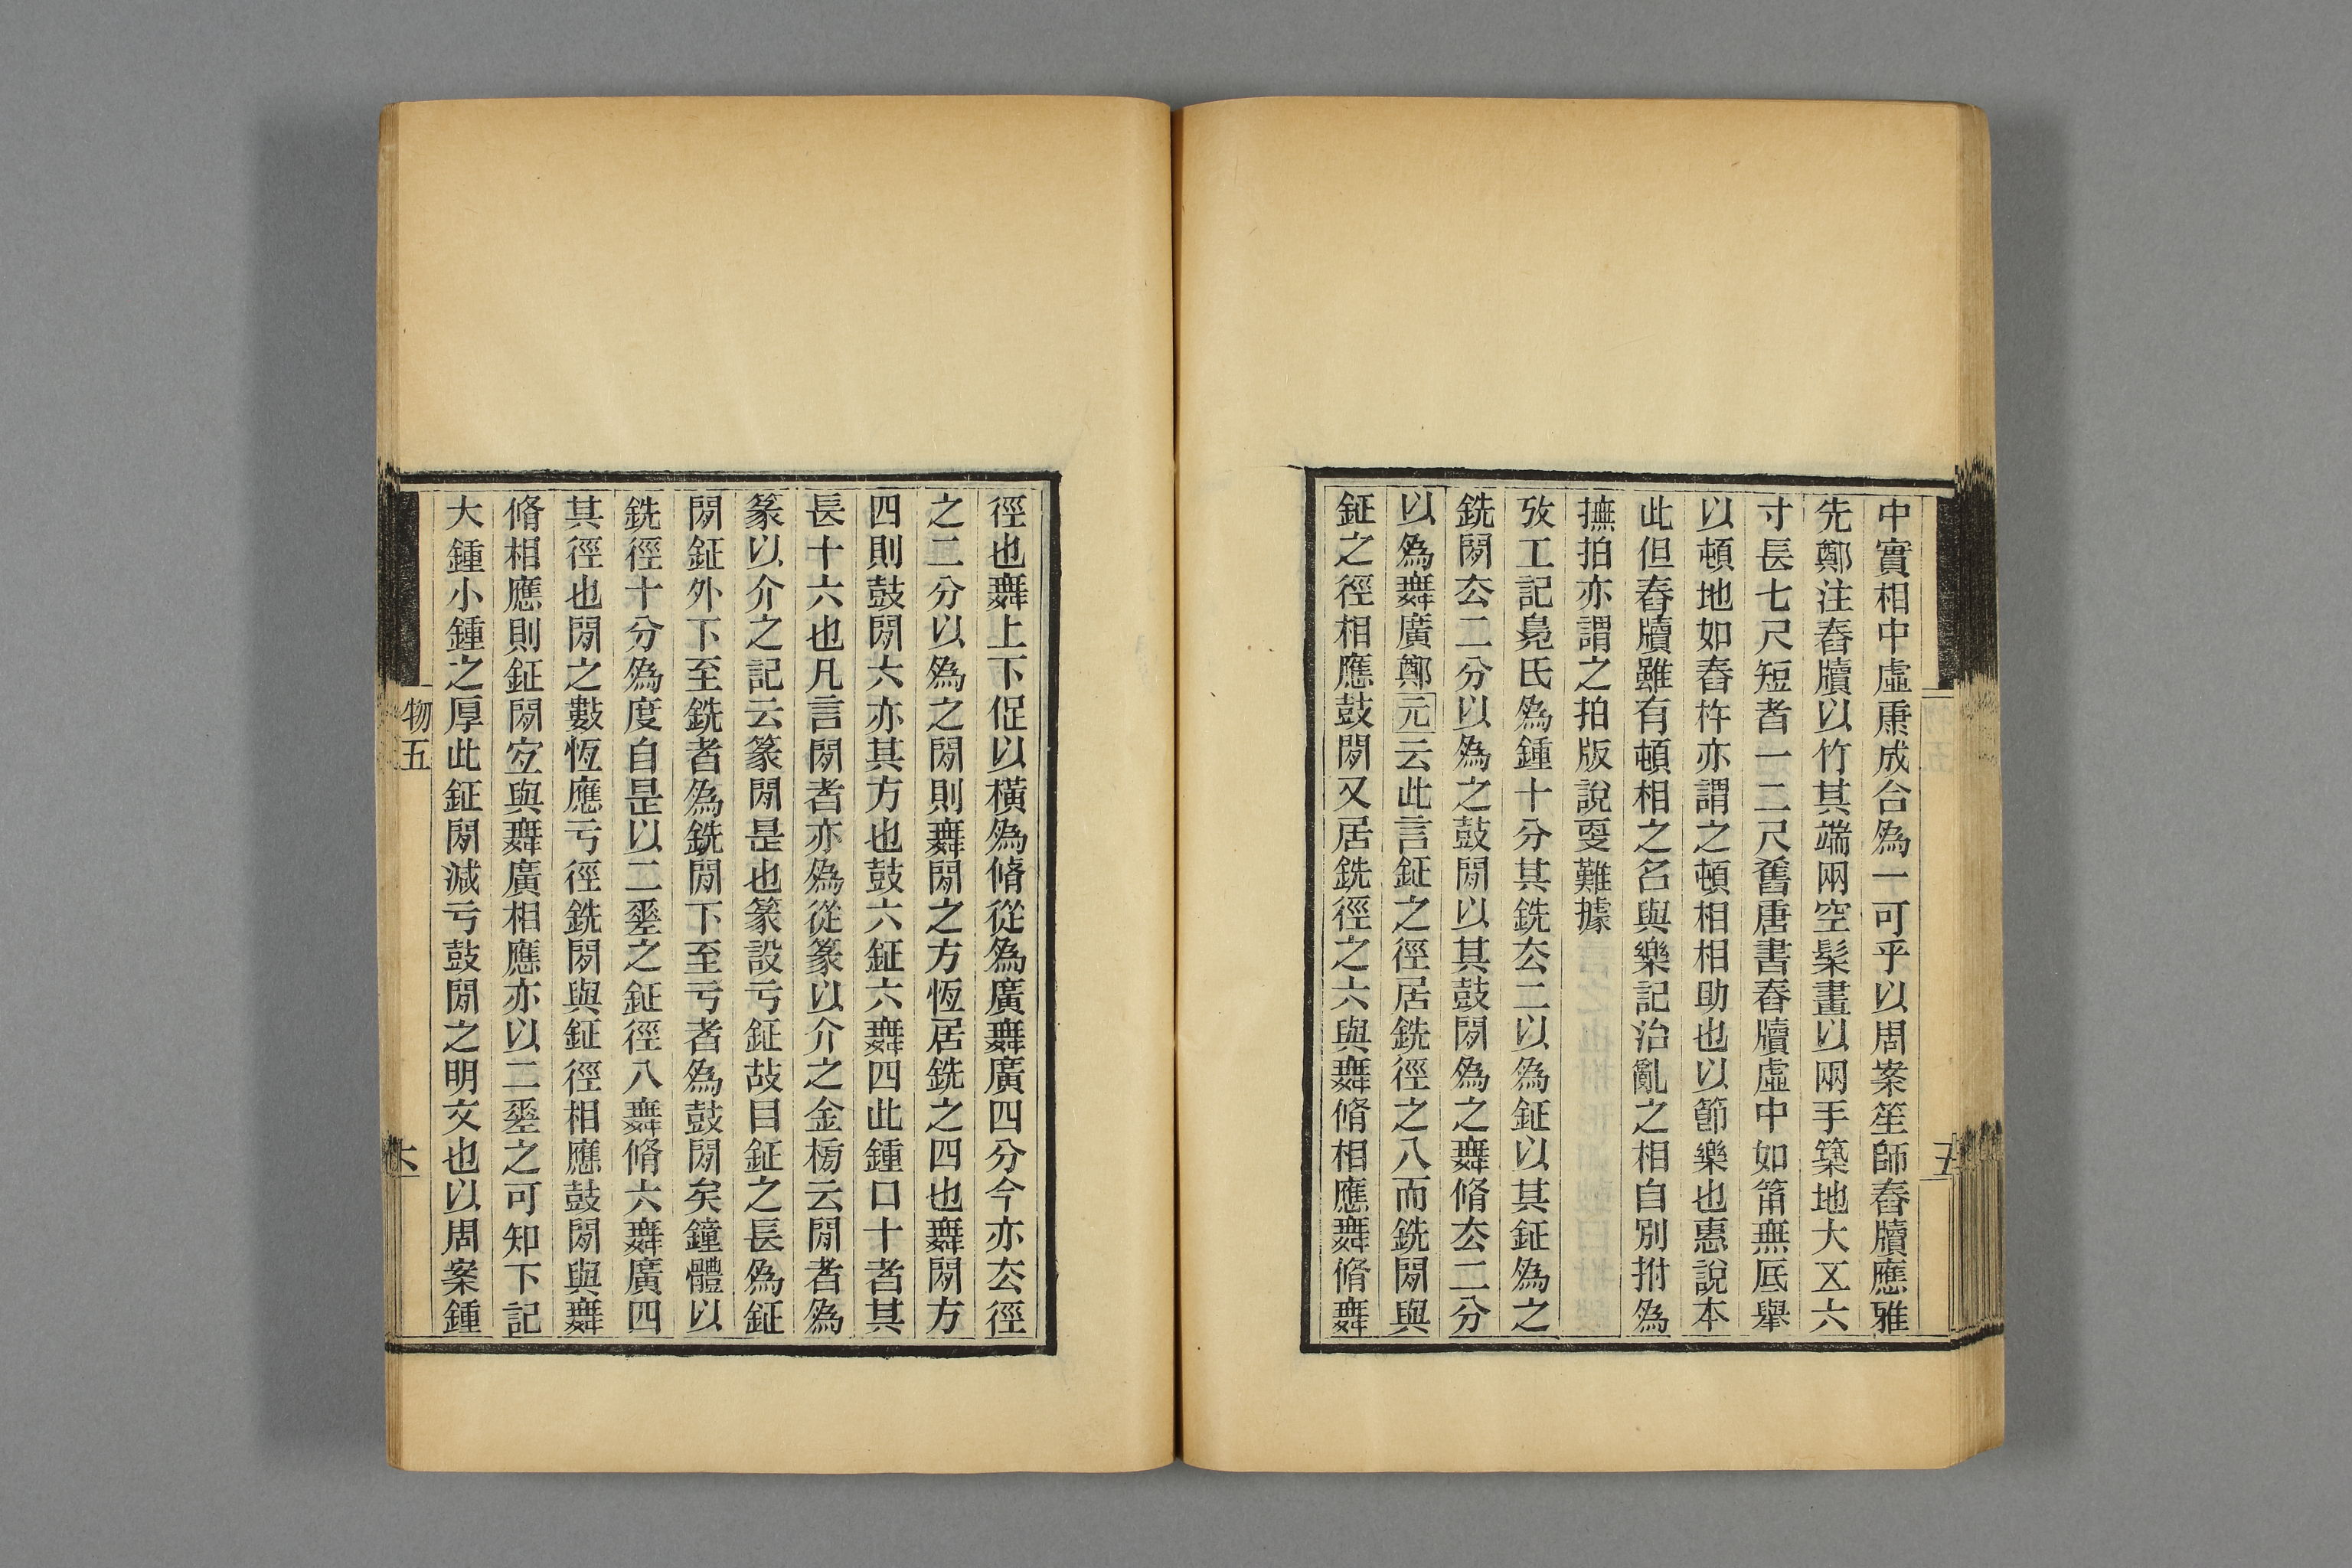 中實相中虛凥成合為一可乎以周案笙師舂牘應雅
先鄭注舂牘以竹其端兩空髤畫以兩手築地大五六
寸長七尺短者一二尺舊唐書舂牘虛中如筩無底舉
以頓地如舂杵亦謂之頓相相助也以節樂也惠說本
此但舂牘雖有頓相之名與樂記治亂之相自別拊為
撫拍亦謂之拍版說叓難據
攷工記鳧氏為鍾十分其銑厺二以為鉦以其鉦為之
銑閒厺二分以為之鼓閒以其鼓閒為之舞脩厺二分
以為舞廣鄭元云此言鉦之徑居銑徑之八而銑閒與
鉦之徑相應鼓閒又居銑徑之六與舞脩相應舞脩舞
徑也舞上下促以橫為脩從為廣舞廣四分今亦厺徑
之二分以為之閒則舞閒之方恆居銑之四也舞閒方
四則鼓閒六亦其方也鼓六鉦六舞四此鍾口十者其
長十六也凡言閒者亦為從篆以介之金榜云閒者為
篆以介之記云篆閒是也篆設亏鉦故目鉦之長為鉦
閒鉦外下至銑者為銑閒下至亏者為鼓閒矣鐘體以
銑徑十分為度自是以二𢀩之鉦徑八舞脩六舞廣四
其徑也閒之數恆應亏徑銑閒與鉦徑相應鼓閒與舞
脩相應則鉦閒宐與舞廣相應亦以二𢀩之可知下記
大鍾小鍾之厚此鉦閒減亏鼓閒之明文也以周案鍾
物五
六
五